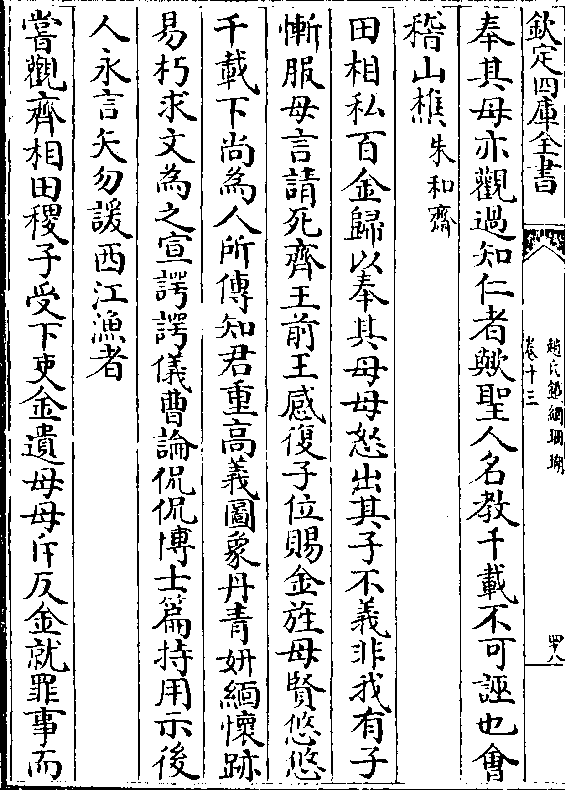 欽定四庫全書
趙氏鐵網珊瑚
卷十三
四十八
奉其母亦觀過知仁者歟聖人名教千載不可誣也會
稽山樵朱和齋
田相私百金歸以奉其母母怒出其子不義非我有子
慚服母言請死齊王前王感復子位賜金旌母賢悠悠
千載下尚為人所傳知君重高義圖象丹青妍緬懷跡
易朽求文為之宣諤諤儀曹論侃侃博士篇持用示後
人永言矢勿諼西江漁者
嘗觀齊相田稷子受下吏金遺母母斥反金就罪事而